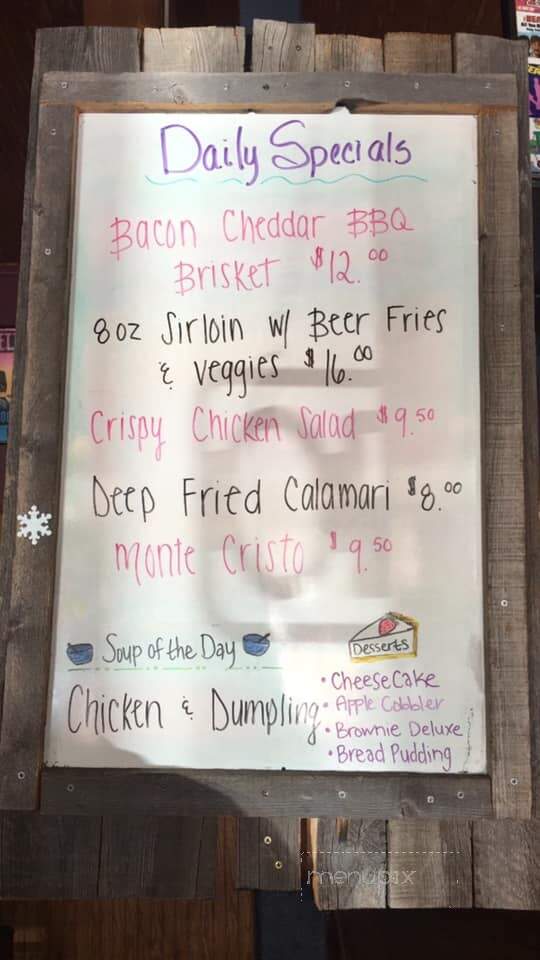 Daily Specials
Bacon Cheddar BBQ
Brisket $12.00
8oz Sirloin w/ Beer Fries
& veggies $16.00
Crispy Chicken Salad $9.50
Deep Fried Calamari $8.00
Monte Cristo $9.50
Soup of the Day
Chicken & Dumpling
Desserts
• CheeseCake
• Apple Cobbler
• Brownie Deluxe
• Bread Pudding
menupix